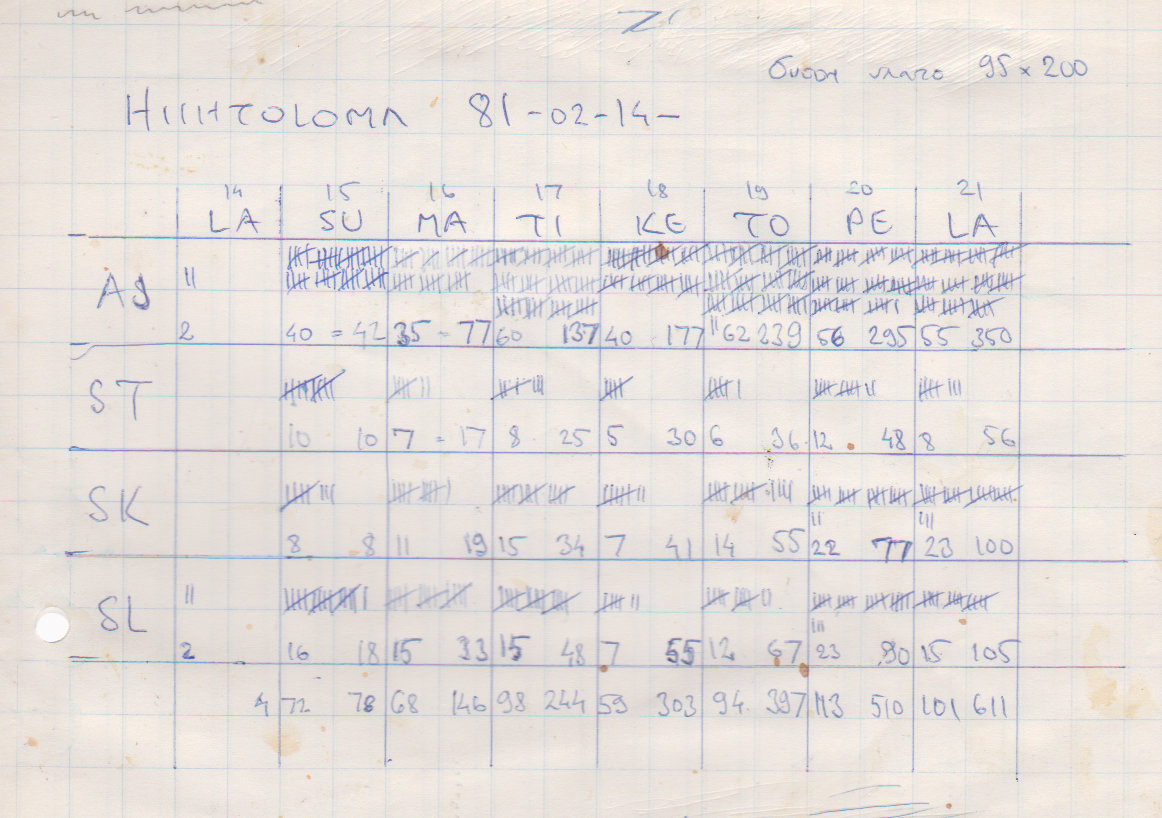 95 x 200
HIIHTOLOMA 81-02-14-
14 15 16 17 18 19 20 21
LA SU MA TI KE TO PE LA
AJ
2 40 = 42 35 - 77 60 137 40 177 62 239 56 295 55 350
ST
10 10 7 - 17 8 25 5 30 6 36 12 48 8 56
SK
8 8 11 19 15 34 7 41 14 55 22 77 23 100
SL
2 16 18 15 33 15 48 7 55 12 67 23 90 15 105
4 72 78 68 146 98 244 59 303 94 397 113 510 101 611